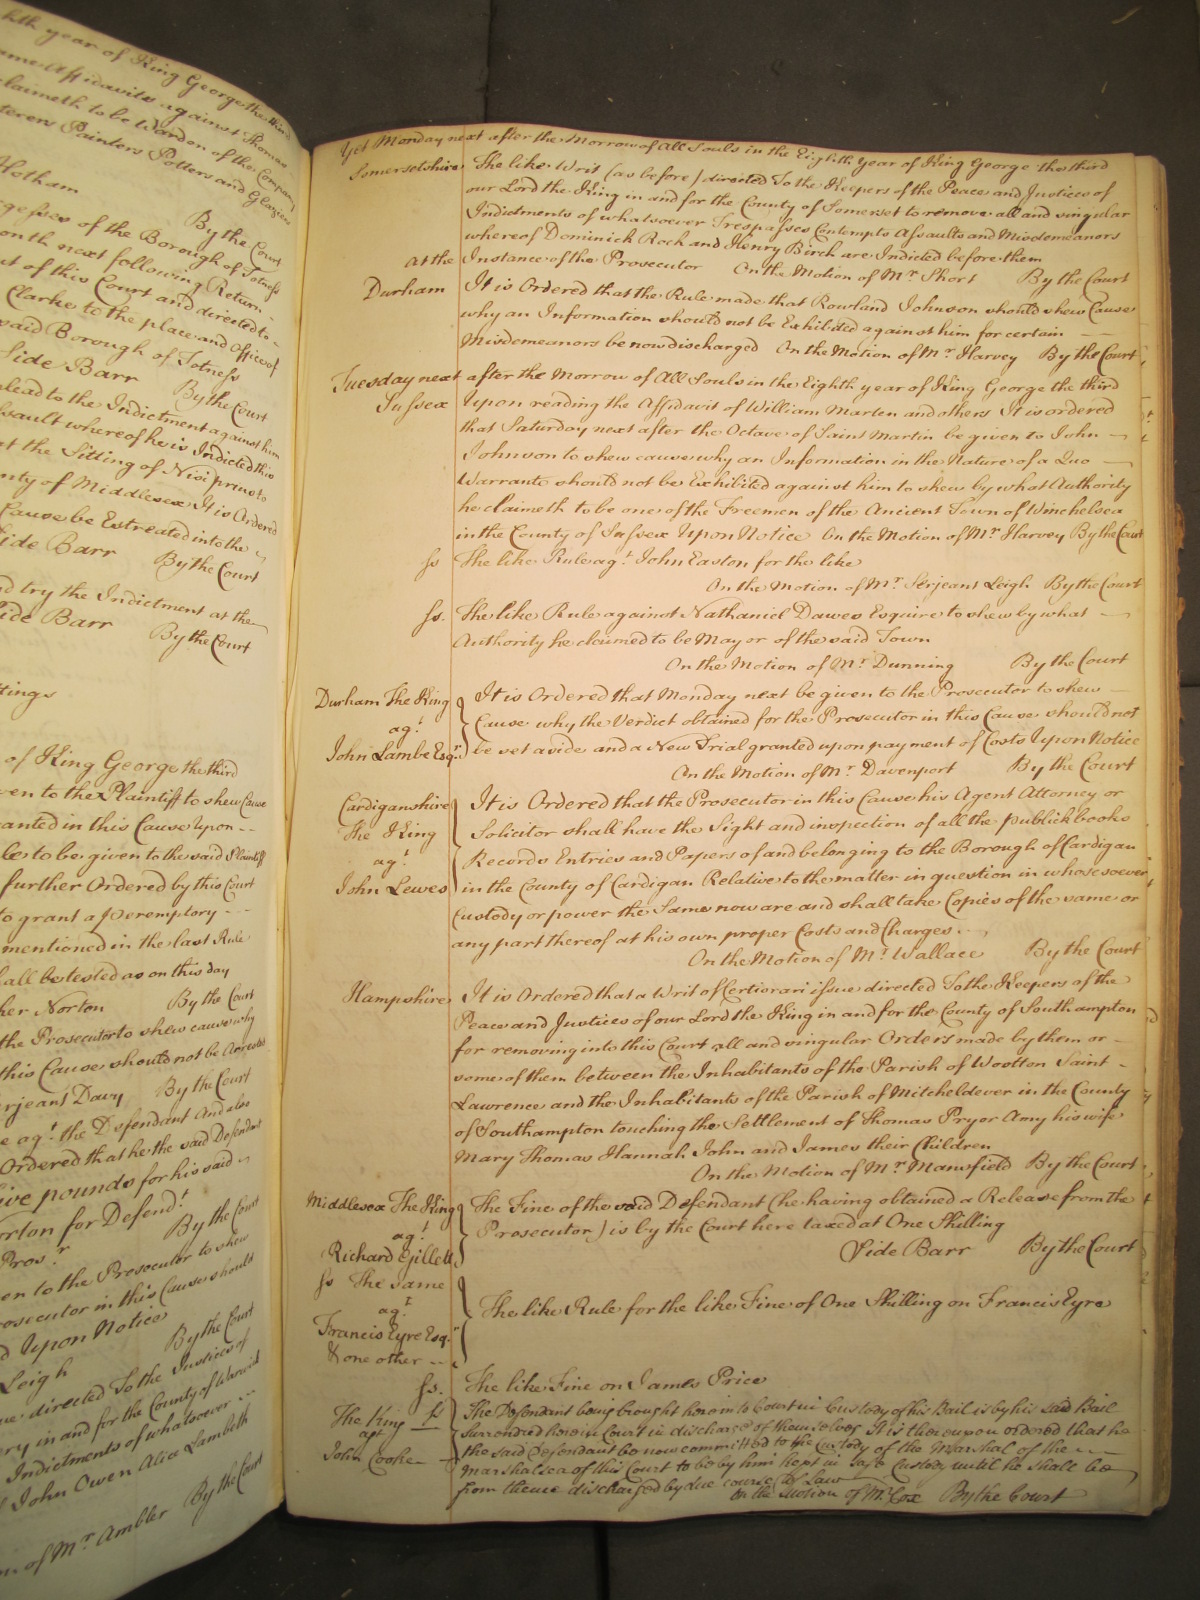 hth year of King George the third
ame Affidavits against Thomas
claimeth to be Warden of the Company
terers Painters Potters and Glaziers
Hotham By the Court
gesses of the Borough of Totness
onth next following Return
ut of this Court and directed to
Clarke to the place and Office of
said Borough of Totness
Side Barr By the Court
plead to the Indictment against him
ssault whereof he is Indicted this
at the Sitting of Nisi prius to
nty of Middlesex It is Ordered
Cause be Estreated into the
Side Barr By the Court
nd try the Indictment at the
ide Barr By the Court
ttings
of King George the third
ven to the Plaintiff to shew Cause
ranted in this Cause Upon
le to be given to the said Plaintiff
further Ordered by this Court
to grant a peremptory
mentioned in the last Rule
hall be tested as on this day
her Norton By the Court
the Prosecutor to shew cause why
this Cause should not be Arrested
erjeant Davy By the Court
e agt. the Defendant And also
Ordered that he the said Defendant
ive pounds for his said
orton for Defendt.
Prosr. By the Court
en to the Prosecutor to shew
rosecutor in this Cause should
d Upon Notice
Leigh By the Court
ue directed To the Justices of
ery in and for the County of Warwick
Indictments of whatsoever
John Owen Alice Lambeth
on of Mr. Ambler By the Court
Yet Monday next after the Morrow of All Souls in the Eighth Year of King George the third
Somersetshire The like Writ (as before) directed To the Keepers of the Peace and Justices of
our Lord the King in and for the County of Somerset to remove all and singular
Indictments of whatsoever Trespasses Contempts Assaults and Misdemeanors
whereof Dominick Roch and Henry Birch are Indicted before them
at the Instance of the Prosecutor On the Motion of Mr. Short By the Court
Durham It is Ordered that the Rule made that Rowland Johnson should shew Cause
why an Information should not be Exhibited against him for certain
Misdemeanors be now discharged On the Motion of Mr. Harvey By the Court
Tuesday next after the Morrow of All Souls in the Eighth year of King George the third
Sussex Upon reading the Affidavit of William Marten and others It is ordered
that Saturday next after the Octave of Saint Martin be given to John
Johnson to shew cause why an Information in the Nature of a Quo
Warranto should not be Exhibited against him to shew by what Authority
he claimeth to be one of the Freemen of the Ancient Town of Winchelsea
in the County of Sussex Upon Notice On the Motion of Mr. Harvey By the Court
ss The like Rule agt. John Easton for the like
On the Motion of Mr. Serjeant Leigh By the Court
ss. The like Rule against Nathaniel Dawes Esquire to shew by what
Authority he claimed to be Mayor of the said Town
On the Motion of Mr. Dunning By the Court
Durham The King It is Ordered that Monday next be given to the Prosecutor to shew
agt. Cause why the Verdict obtained for the Prosecutor in this Cause should not
John Lambe Esqr. be set aside and a New Trial granted upon payment of Costs Upon Notice
On the Motion of Mr. Davenport By the Court
Cardiganshire It is Ordered that the Prosecutor in this Cause his Agent Attorney or
The King Solicitor shall have the Sight and inspection of all the publick books
agt. Records Entries and Papers of and belonging to the Borough of Cardigan
John Lewes in the County of Cardigan Relative to the matter in question in whosesoever
Custody or power the Same now are and shall take Copies of the same or
any part thereof at his own proper Costs and Charges
On the Motion of Mr. Wallace By the Court
Hampshire It is Ordered that a Writ of Certiorari issue directed To the Keepers of the
Peace and Justices of our Lord the King in and for the County of Southampton
for removing into this Court all and singular Orders made by them or
some of them between the Inhabitants of the Parish of Wootton Saint
Lawrence and the Inhabitants of the Parish of Mitcheldever in the County
of Southampton touching the Settlement of Thomas Pryor Amy his wife
Mary Thomas Hannah John and James their Children
On the Motion of Mr. Mansfield By the Court
Middlesex The King The Fine of the said Defendant (he having obtained a Release from the
agt. Prosecutor) is by the Court here taxed at One Shilling
Richard Gillett Side Barr By the Court
ss The same
agt. The like Rule for the like Fine of One Shilling on Francis Eyre
Francis Eyre Esqr.
& one other
ss. The like Fine on James Price
The King ss The Defendant being brought here into Court in Custody of his Bail is by his said Bail
agt Surrendred here in Court in discharge of themselves It is thereupon ordered that he
John Cooke the said Defendant be now committed to the Custody of the Marshal of the
Marshalsea of this Court to be by him kept in safe Custody until he shall be
from thence discharged by due course of Law
On the Motion of Mr. Cox By the Court